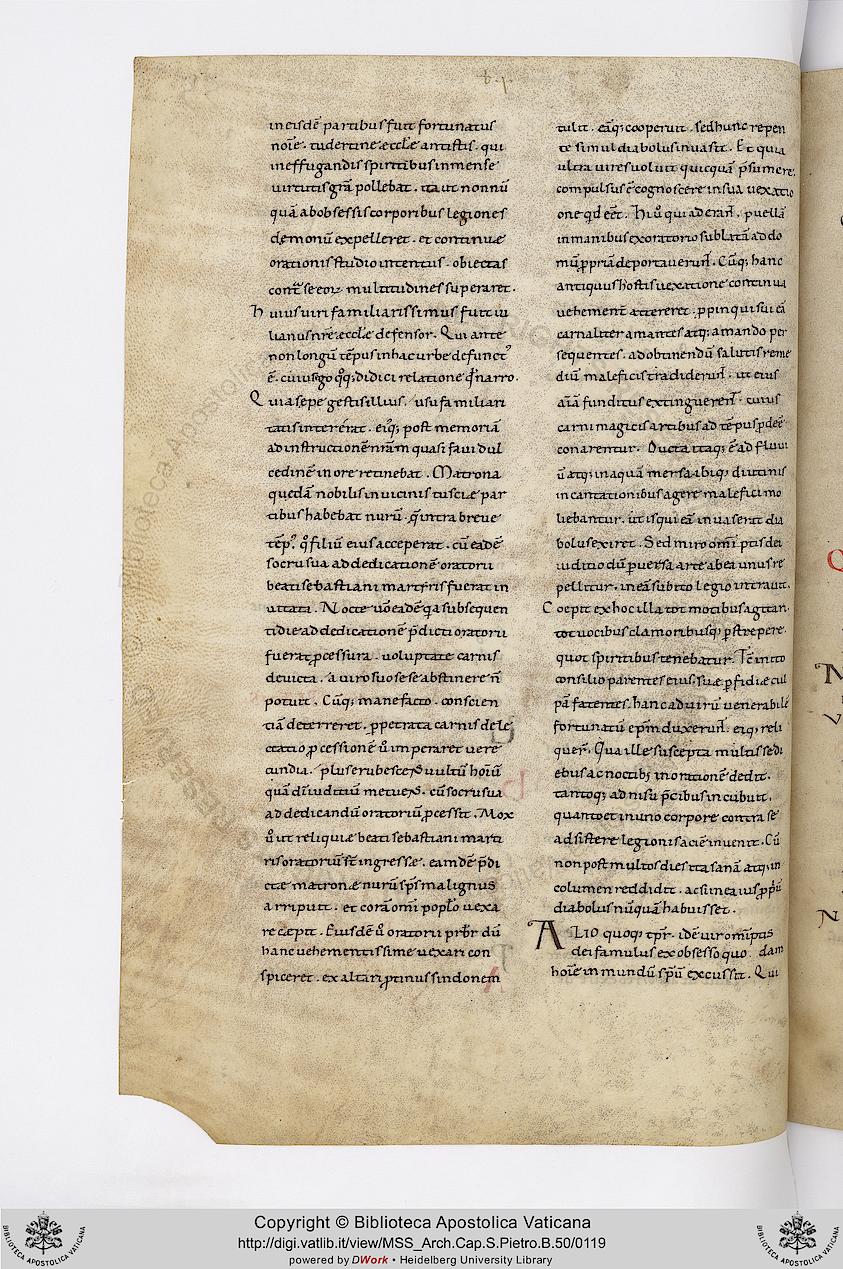 in eisdē partibus fuit fortunatus
noīe. tudertine æccłe antistis. qui
in effugandis spiritibus inmense
virtutis grā pollebat. ita ut nonnū
quā ab obsessis corporibus legiones
demonū expelleret. et continuæ
orationis studio intentus. obiectas
cont̄ se eoꝝ multitudines superaret.
huius viri familiarissimus fuit iu
lianus nr̄e æccłe defensor. Qui ante
non longū tēpus in hac urbe defunctꝰ
ē. cuius ego qꝫ didici relatione qđ narro.
Quia sepe gestis illius. usu familiari
tatis intererat. eiqꝫ post memoriā
ad instructionē nrām quasi favi dul
cedinē in ore retinebat. Matrona
quedā nobilis in vicinis tusciæ par
tibus habebat nurū. q̄ intra breve
tēpꝰ. qđ filiū eius acceperat. cū eadē
socru sua ad dedicationē oratorii
beati sebastiani martyris fuerat in
vitata. Nocte v̄o eadē q̄a subsequen
ti die ad dedicationē p̄dicti oratorii
fuerat ꝓcessura. voluptate carnis
devicta. a viro suo sese abstinere n̄
potuit. Cūqꝫ mane facto. conscien
tiā deterreret. ꝑpetrata carnis dele
ctatio ꝓcessionē v̄ imperaret vere
cundia. plus erubescens vultū hoīū
quā dī iuditiū metuens. cū socru sua
ad dedicandū oratoriū ꝓcessit. Mox
v̄ ut reliquiæ beati sebastiani marti
ris oratoriū st̄ ingressæ. eamdē p̄di
ctæ matronæ nurū sp̄s malignus
arripuit. et corā omi popło vexa
re cæpit. Eiusdē v̄ oratorii prb̄r dū
hanc vehementissime vexari con
spiceret. ex altari ꝓtinus sindonem
tulit. eāqꝫ cooperuit. sed hunc repen
te simul diabolus invasit. Et quia
ultra vires voluit quicquā p̄sumere.
compulsus ē cognoscere in sua vexatio
one qđ eēt. Hi v̄ qui aderan̄. puellā
in manibus ex oratorio sublatā ad do
mū ꝓpriā deportaverun̄. Cūqꝫ hanc
antiquus hostis vexatione continua
vehement̄ attereret. ꝓpinqui sui eā
carnaliter amantes atqꝫ amando per
sequentes. ad obtinendū salutis reme
diū maleficis tradiderun̄. ut eius
aīā funditus extingueren̄. cuius
carni magicis artibus ad tēpus ꝓdeē
conarentur. Ducta itaqꝫ ē ad fluvi
ū atqꝫ in aquā mersa. ibiqꝫ diutinis
incantationibus agere malefici mo
liebantur. ut is qui eā invaserat dia
bolus exiret. Sed miro omīptis dei
iuditio dū ꝑversa arte ab ea unus re
pellitur. in eā subito legio intravit.
Coepit ex hoc illa tot motibus agitari.
tot vocibus clamoribusqꝫ ꝑstrepere.
quot spiritibus tenebatur. Tc̄ inito
consilio parentes eius. suæ ꝑfidiæ cul
pā fatentes. hanc ad virū venerabilē
fortunatū ep̄m duxerun̄. eiqꝫ reli
quer̄. Qua ille suscepta multis edi
ebus ac noctibꝫ in orationē dedit.
tantoqꝫ adnisu p̄cibus incubuit.
quanto et in uno corpore contra se
adsistere legionis aciē invenit. Cū
non post multos dies ita sanā atqꝫ in
columen reddidit. ac si in ea ius ꝓpriū
diabolus nūquā habuisset.
ALIO quoqꝫ tp̄r. idē vir omīptis
dei famulus ex obsesso quodam
hoīe inmundū sp̄ū excussit. Qui
Copyright © Biblioteca Apostolica Vaticana
http://digi.vatlib.it/view/MSS_Arch.Cap.S.Pietro.B.50/0119
powered by DWork • Heidelberg University Library